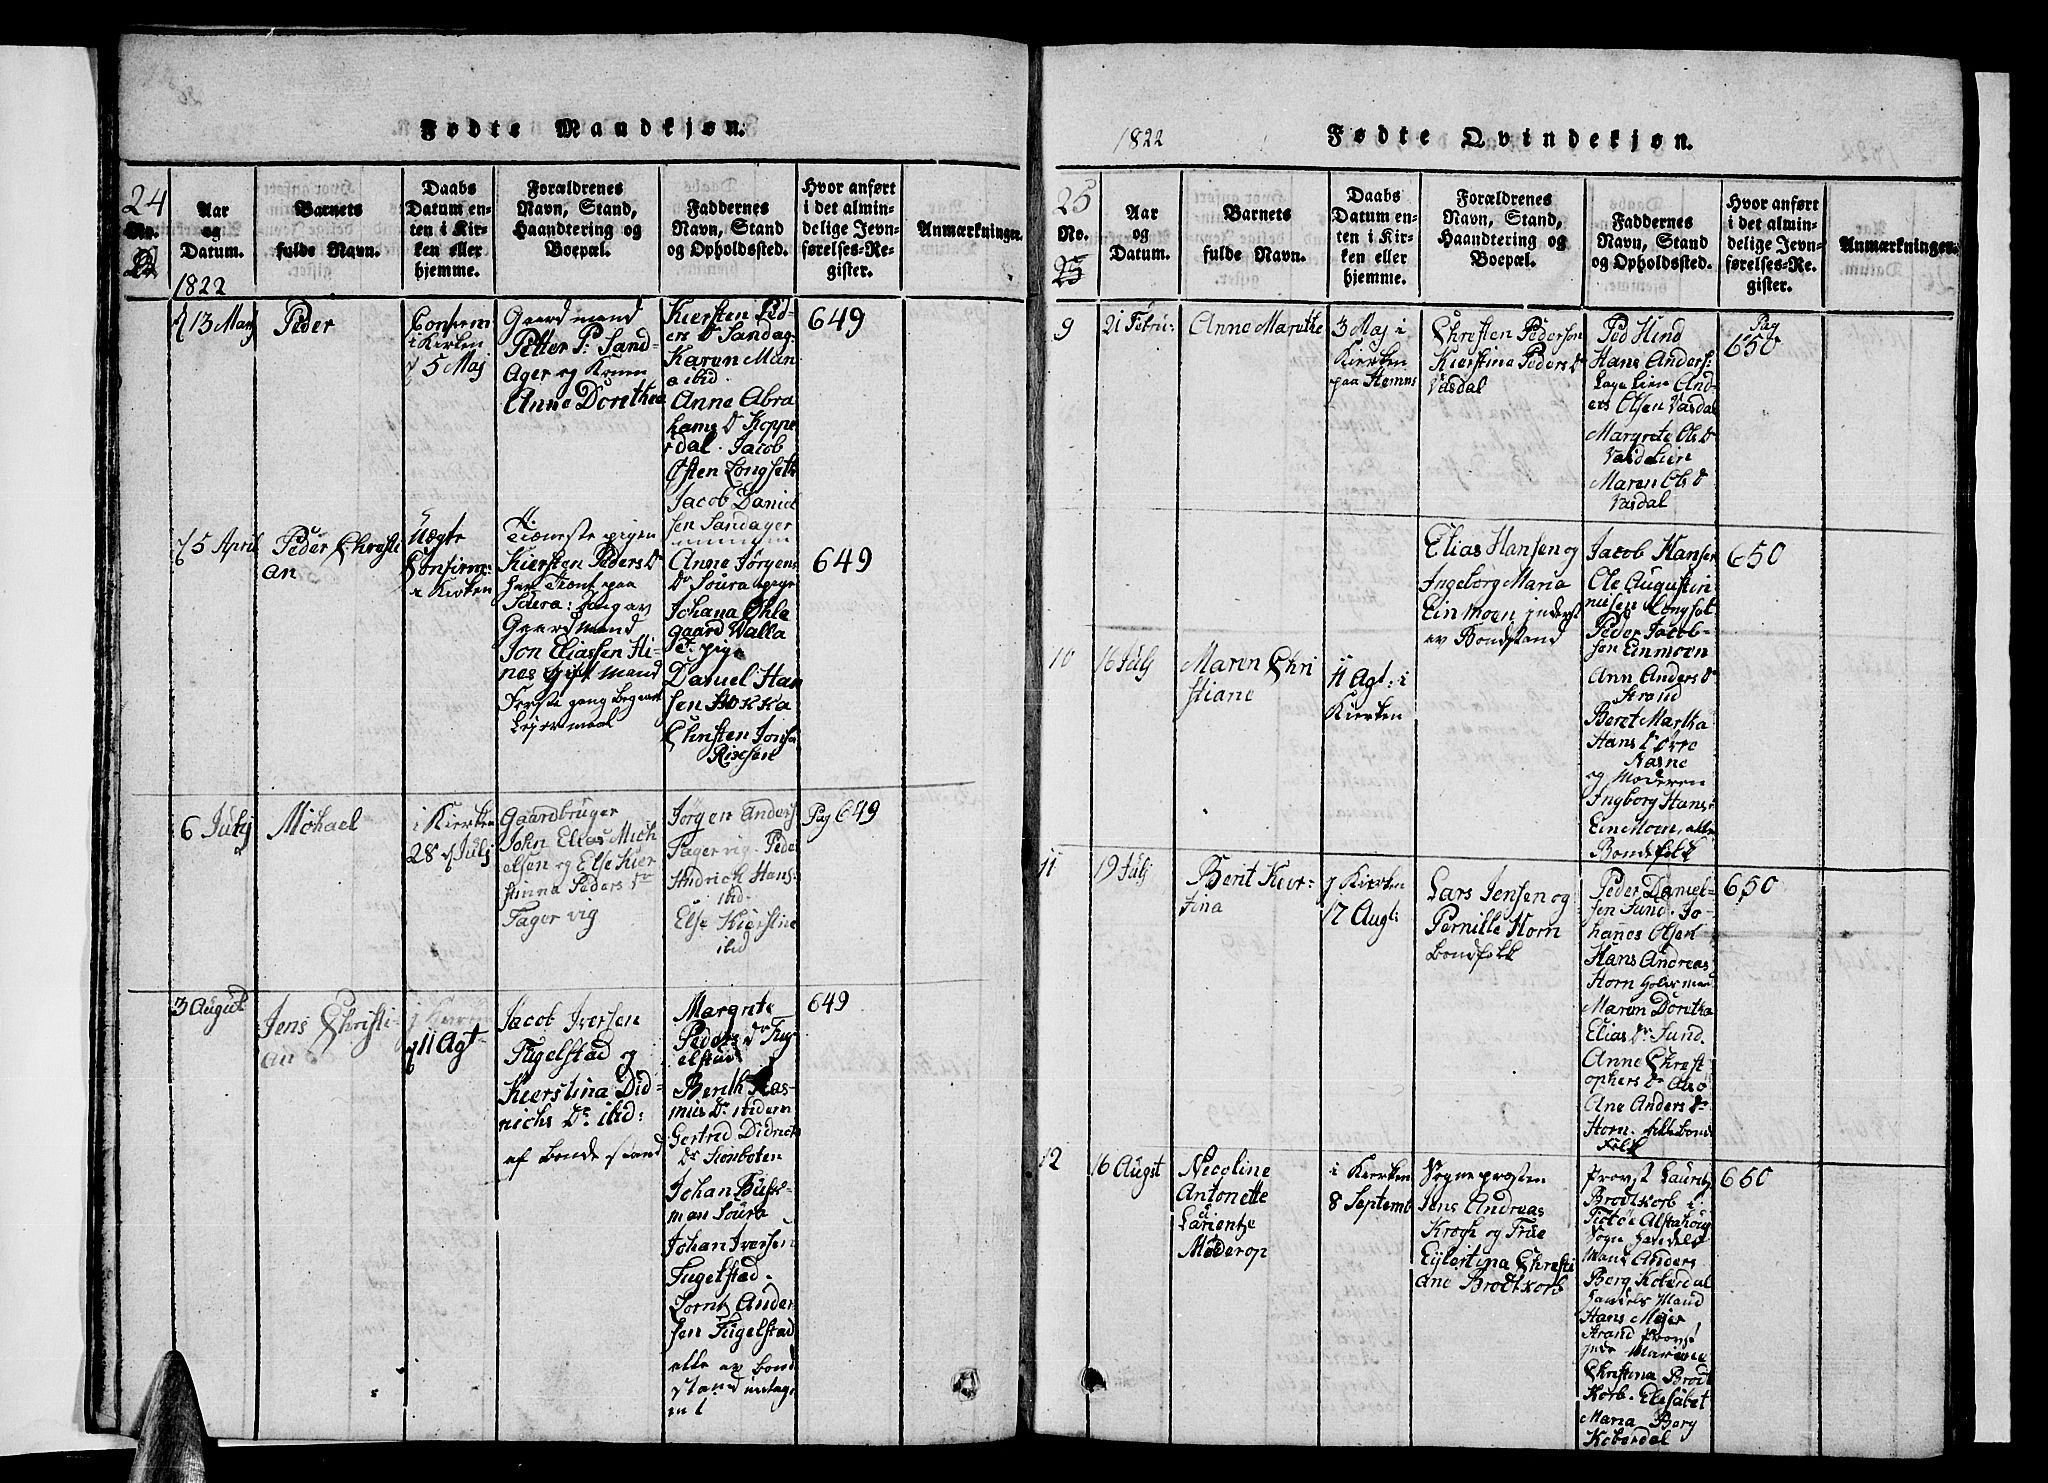 Fødte Mandkjøn.
24
No.
Aar
og
Datum.
Barnets
fulde Navn.
Daabs
Datum en-
ten i Kir-
ken eller
hjemme.
Forældrenes
Navn, Stand,
Haandtering og
Boepæl.
Faddernes
Navn, Stand
og Opholdssted.
Hvor anført
i det almin-
delige Jevn-
førelses-Re-
gister.
Anmærkninger.
1822
13 Martj
Peder
Confirm
i Kirken
5 Maj
Gaardmand
Petter P. Sand-
Ager og Konen
Anne Dorethea
Kiersten Ped-
ers Dr Sandag-
Karen Man
ibid.
Anne Abra
hams Dr Koppe
rdal. Jacob
Østen Longset
Jacob Daniel
sen Sandager
649
5 April
Peder Christi
an
Uægte
Confirm:
i Kirken
Tieneste pigen
Kiersten Peders Dr
har Tient paa
Søura:
Gaardmand
Jon Eliassen Hi-
nes gift Mand
Første gang begaaet
Lejermaal
Anne Jørgens
Dr Soura pige
Johana Ohle
gaard Valla
T. pige
Daniel Han
sen Stokka
Christen Jonsen
649
6 Julj
Michael
i Kierken
28 Julj
Gaardbruger
John Elias Mich
elsen og Else Kier
stinna Peders Dr
Fagervig
Jørgen Anders
Fagervig. Peder
Hndrick Hans-
ibid-
Else Kierstine
ibid
Pag 649
3 August
Jens Christi-
an
11 Agt
Jacob Iversen
Fugelstad og
Kierstina Did-
richs Dr. ibid:
af Bonde stand
Margrete
Peders Dr Fug
elstad
Berith Ras-
mus Dr. ibidem
Gertrud Didrichs
Dr
Johan Buss-
man Soura
Johan Iversen
Fugelstad-
Lornts Ander
sen Fugelstad
alle av bond
stand
649
1822
Fødte Qvindekjøn.
25
No.
25
Aar
og
Datum.
Barnets
fulde Navn.
Daabs
Datum en-
ten i Kir-
ken eller
hjemme.
Forældrenes
Navn, Stand,
Haandtering og
Boepæl.
Faddernes
Navn, Stand
og Opholdssted.
Hvor anført
i det almin-
delige Jevn-
førelses-Re-
gister.
Anmærkninger.
9
21 Febru:
Anne Marethe
3 Maj i
Kierken
paa Hemnes
Christen Pederson
Kierstina Peders Dr
Vasdal
Ped Hind
Hans Anders:
And-
ers Olsen Vasdal
Margrete Ols Dr
Vasdalein
Maren Ols Dr
Vasdal
Pag
650
10
16 Julj
Maren Chri
stiane
11 Agt: i
Kierken
Elias Hansen og
Ingeborg Maria
Einmoen
av Bondstand
Jacob Hansen
Ole Augustin
nusen Longset
Peder Jacob-
sen Einmoen
Ann Anders Dr
Strand
Beret Martha
Hans Dr Øvre
Nasne
og Moderen
Ingborg Hans-
Ein Moen, alle
Bondefolk
650
11
19 Julj
Berit Kier-
tina
i Kierken
17 Augt:
Lars Jensen og
Pernille Horn
bondfolk
Peder Daniel-
sen Sund. Jo-
hanes Olsen
Hans Andreas
Horn
Maren Doretha
Elias Dr Sund.
Anne Christ
ophers Dr
Ane Anders Dr
Horn. alle bonde
Folk
650
12
16 Augst
Nicoline
Antonette
Laurentze
Møderop
i Kierken
8 Septemb
Sogneprosten
Jens Andreas
Krogh og Frue
Eylertina Christi
ane Brodtkorb
Provst Lauritz
Brodtkorb i
Tiøtøe Alstahoug
Sogn Handels
Mand Anders
Berg Koberdal
Handels Mand
Hans Mejer
Strand
Christina Brodt
Korb. Elisabet
Maria Berg
Koberdal
650